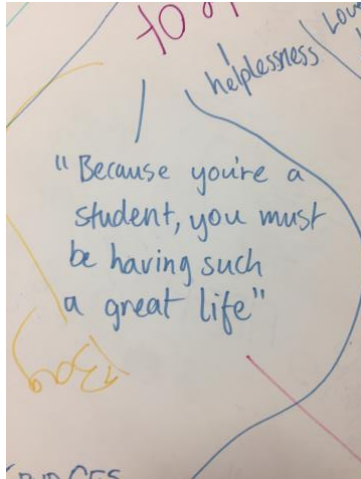 helplessness
"Because you're a
student, you must
be having such
a great life"